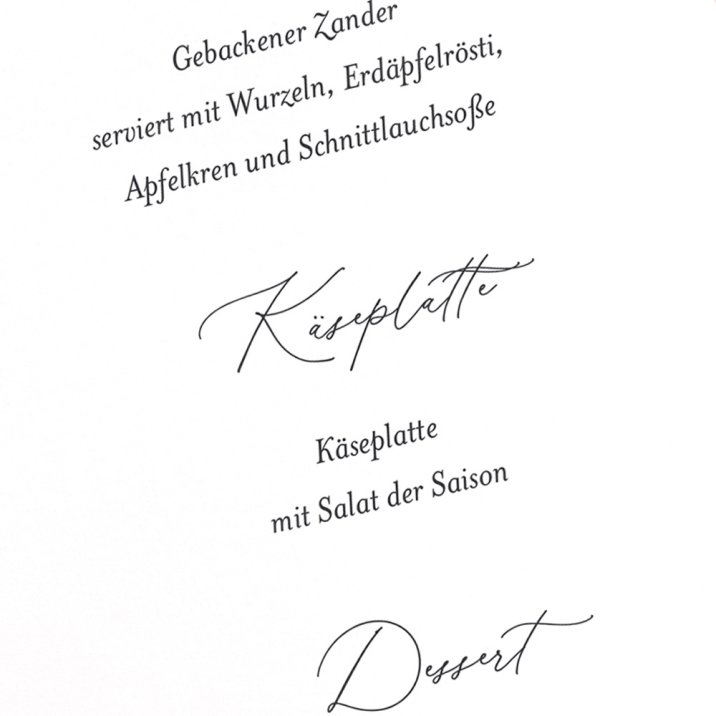 Gebackener Zander
serviert mit Wurzeln, Erdäpfelrösti,
Apfelkren und Schnittlauchsoße
Käseplatte
Käseplatte
mit Salat der Saison
Dessert